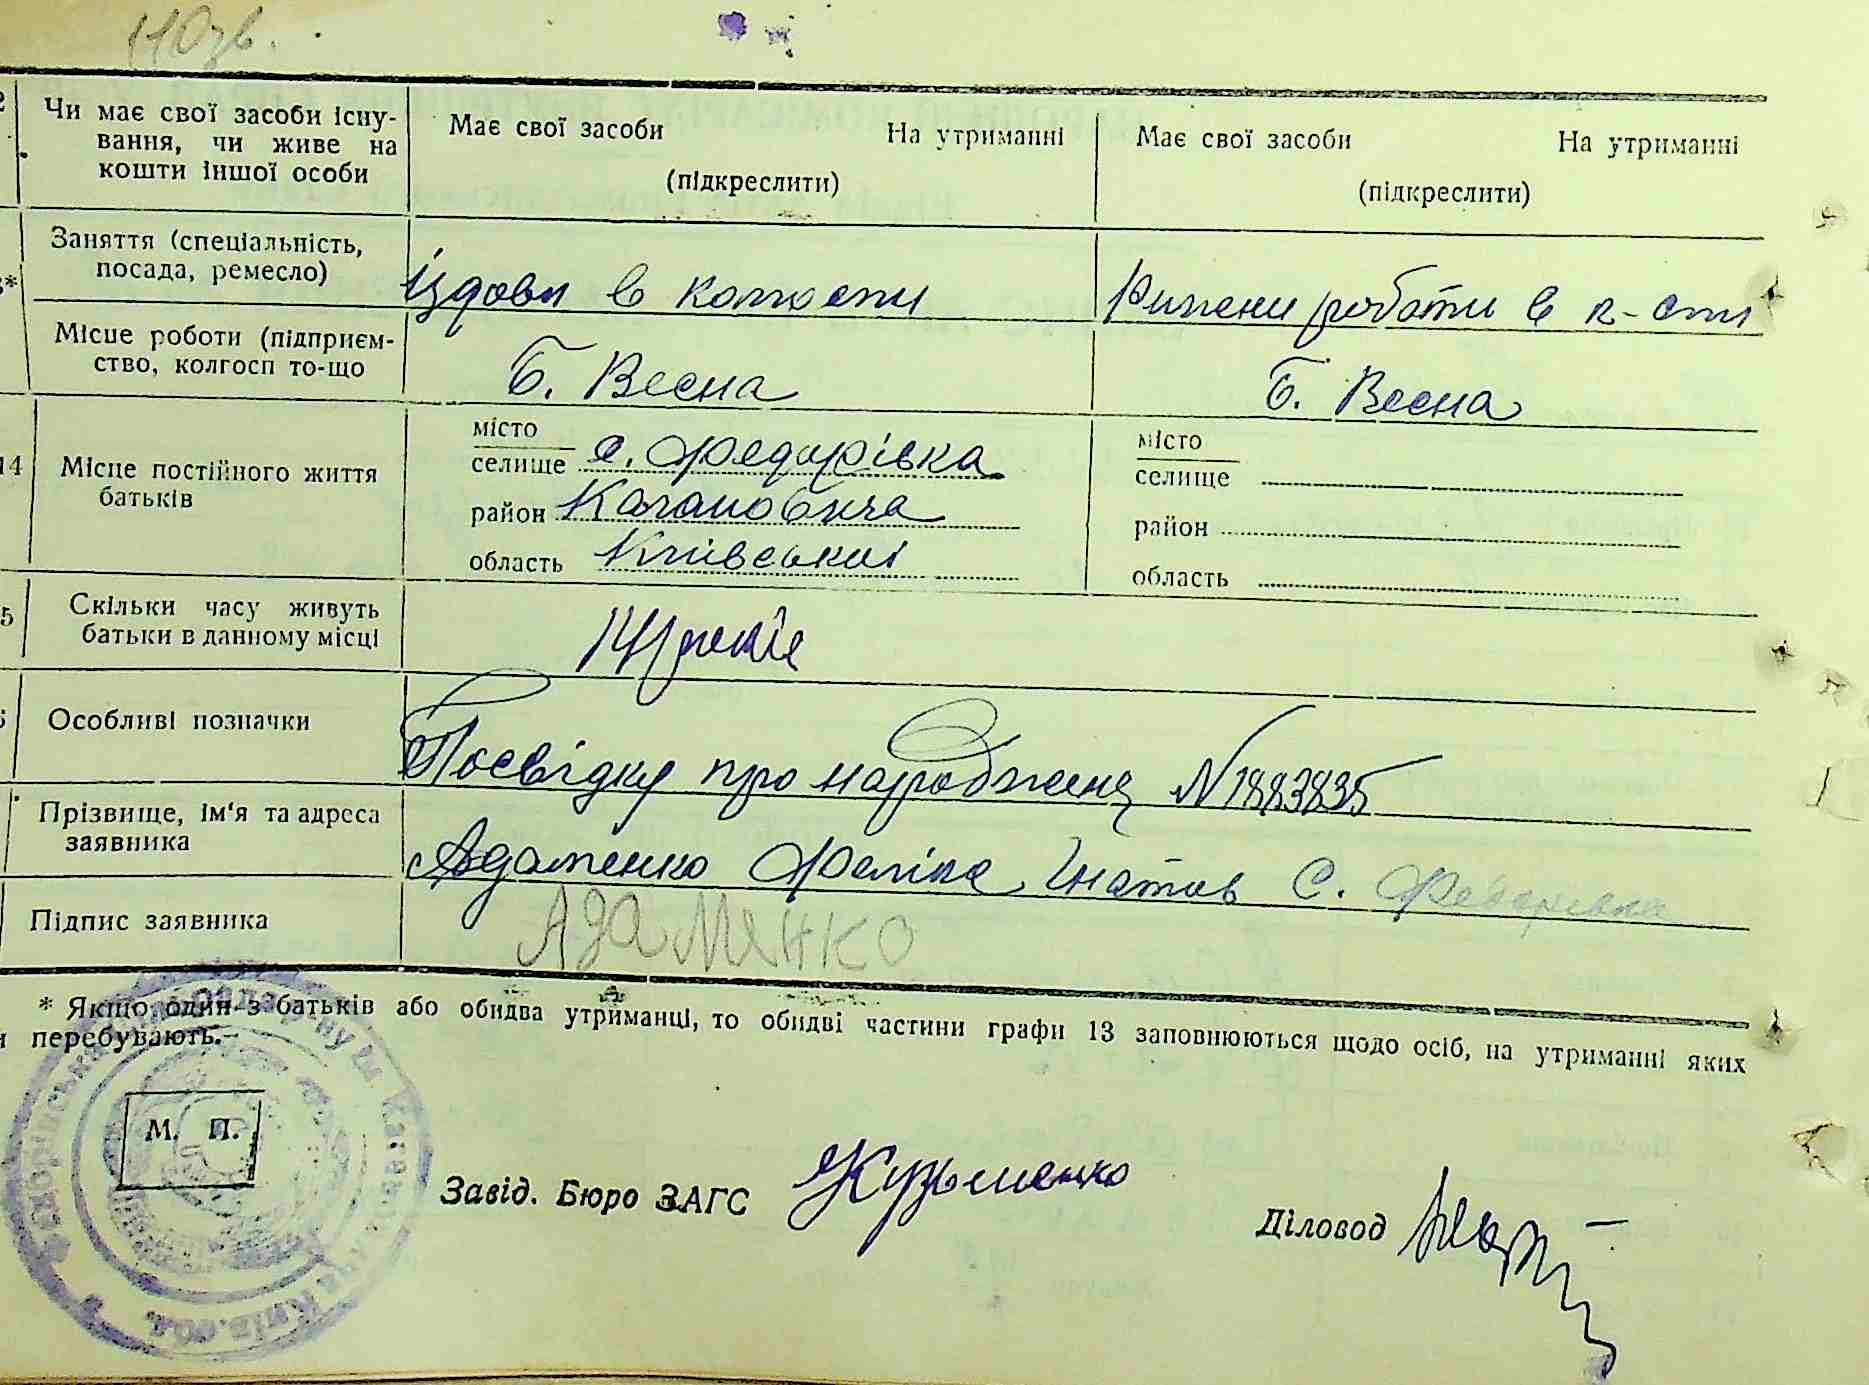 110 зв.
2 Чи має свої засоби існу-
вання, чи живе на
кошти іншої особи
Має свої засоби На утриманні
(підкреслити)
Має свої засоби На утриманні
(підкреслити)
3* Заняття (спеціальність,
посада, ремесло)
Їздови в колгоспи
роботи в к-спи
Місце роботи (підприєм-
ство, колгосп то-що
Б. Весна
Б. Весна
14 Місце постійного життя
батьків
місто
селище с. Федорівка
район Кагановича
область Київський
місто
селище
район
область
5 Скільки часу живуть
батьки в данному місці
Особливі позначки
Посвідку про народження N 1883835
Прізвище, ім'я та адреса
заявника
Адаменко Феліпа Гнатов с. Федорівка
Підпис заявника
Адаменко
* Якщо один з батьків або обидва утриманці, то обидві частини графи 13 заповнюються щодо осіб, на утриманні яких
и перебувають.
М. П.
Завід. Бюро ЗАГС Кузьменко
Діловод